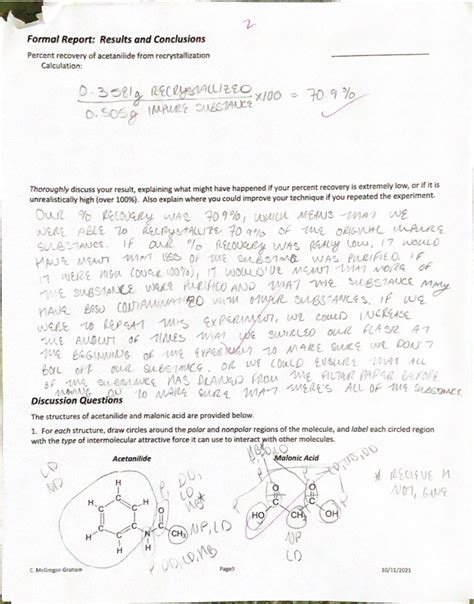 2
Formal Report: Results and Conclusions
Percent recovery of acetanilide from recrystallization
Calculation:
0.3581g RECRYSTALLIZED
0.505g IMPURE SUBSTANCE ×100 = 70.9%
Thoroughly discuss your result, explaining what might have happened if your percent recovery is extremely low, or if it is
unrealistically high (over 100%). Also explain where you could improve your technique if you repeated the experiment.
OUR % RECOVERY WAS 70.9%, WHICH MEANS THAT WE
WERE ABLE TO RECRYSTALLIZE 70.9% OF THE ORIGINAL IMPURE
SUBSTANCE. IF OUR % RECOVERY WAS REALLY LOW, IT WOULD
HAVE MEANT THAT LESS OF THE SUBSTANCE WAS PURIFIED. IF
IT WERE HIGH (OVER 100%), IT WOULD'VE MEANT THAT MORE OF
THE SUBSTANCE WERE PURIFIED AND THAT THE SUBSTANCE MAY
HAVE BEEN CONTAMINATED WITH OTHER SUBSTANCES. IF WE
WERE TO REPEAT THIS EXPERIMENT, WE COULD INCREASE
THE AMOUNT OF TIMES THAT WE SWIRLED OUR FLASK AT
THE BEGINNING OF THE EXPERIMENT TO MAKE SURE WE DON'T
BOIL OFF OUR SUBSTANCE. OR WE COULD ENSURE THAT ALL
OF THE SUBSTANCE HAS DRAINED FROM THE FILTER PAPER BEFORE
MOVING ON TO MAKE SURE THAT THERE'S ALL OF THE SUBSTANCE.
Discussion Questions
The structures of acetanilide and malonic acid are provided below.
1. For each structure, draw circles around the polar and nonpolar regions of the molecule, and label each circled region
with the type of intermolecular attractive force it can use to interact with other molecules.
Acetanilide
Malonic Acid
LD
P, DD,
LD
P, LD, HB, DD
* RECIEVE H
NOT, GIVE
H
H
H
H
H
N
H
O
C
CH₃
NP, LD
P, DD, LD, HB
O
C
HO
CH₂
O
C
OH
NP
LD
C. McGregor-Graham
Page5
10/11/2021